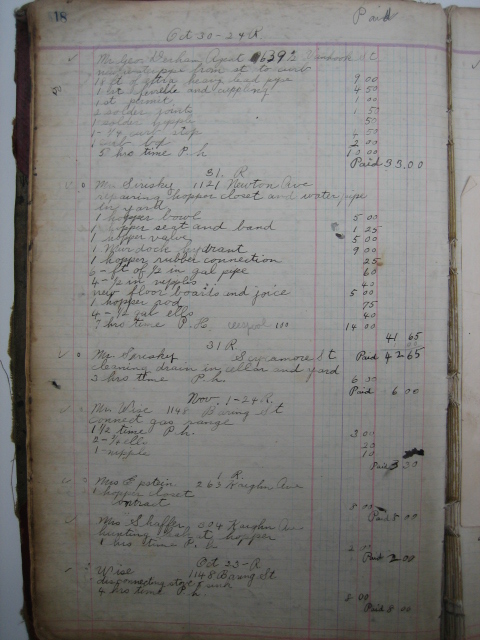 18 Paid
Oct 30-24 R.
Mr Geo
from st to curb
11 ft of extra heavy lead pipe 9 00
1 st ferrule and coppling 4 50
1 st permit 1 00
2 solder joints 1 50
1 solder 50
1-3/4 curb stop 4 50
1 curb box 2 00
5 hrs time P.h 10 00
Paid 33.00
31. R.
Mr Sirisky 1121 Newton Ave
repairing hopper closet and water pipe
in yard
1 hopper bowl 5 00
1 hopper seat and band 1 25
1 hopper valve 5 00
1 Murdock hydrant 9 00
1 hopper rubber connection 25
6-ft of 1/2 in gal pipe 60
4-1/2 in nipples 40
new floor boards and joice 5 00
1 hopper rod 75
4-1/2 gal ells 40
7 hrs time P.h. 14 00
41 65
31 R.
Mr Sirisky Sycamore St Paid 42 65
cleaning drain in cellar and yard
3 hrs time P.h 6 00
Paid 6 00
Nov. 1-24 R.
Mr Wise 1148 Baring St
connect gas range
1 1/2 time P.h. 3 00
2- ells 20
1-nipple 10
Paid 3 30
1 R.
Mrs Epstein 263 Kaighn Ave
1 hopper closet
contract 8 00
Paid 8.00
Mrs Shaffer, Kaighn Ave
hopper
1 hrs time P.h 2 00
Paid 2 00
Oct 23-R
Wise 1148 Baring St
disconnecting stove
4 hrs time P.h. 8 00
Paid 8.00